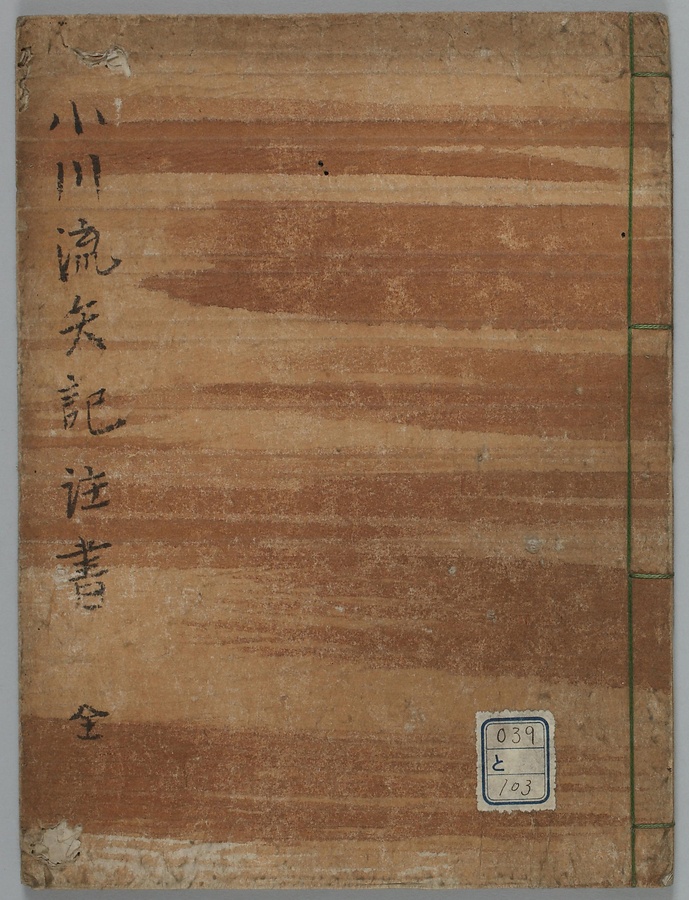 小川流矢記註書 全
039
と
103